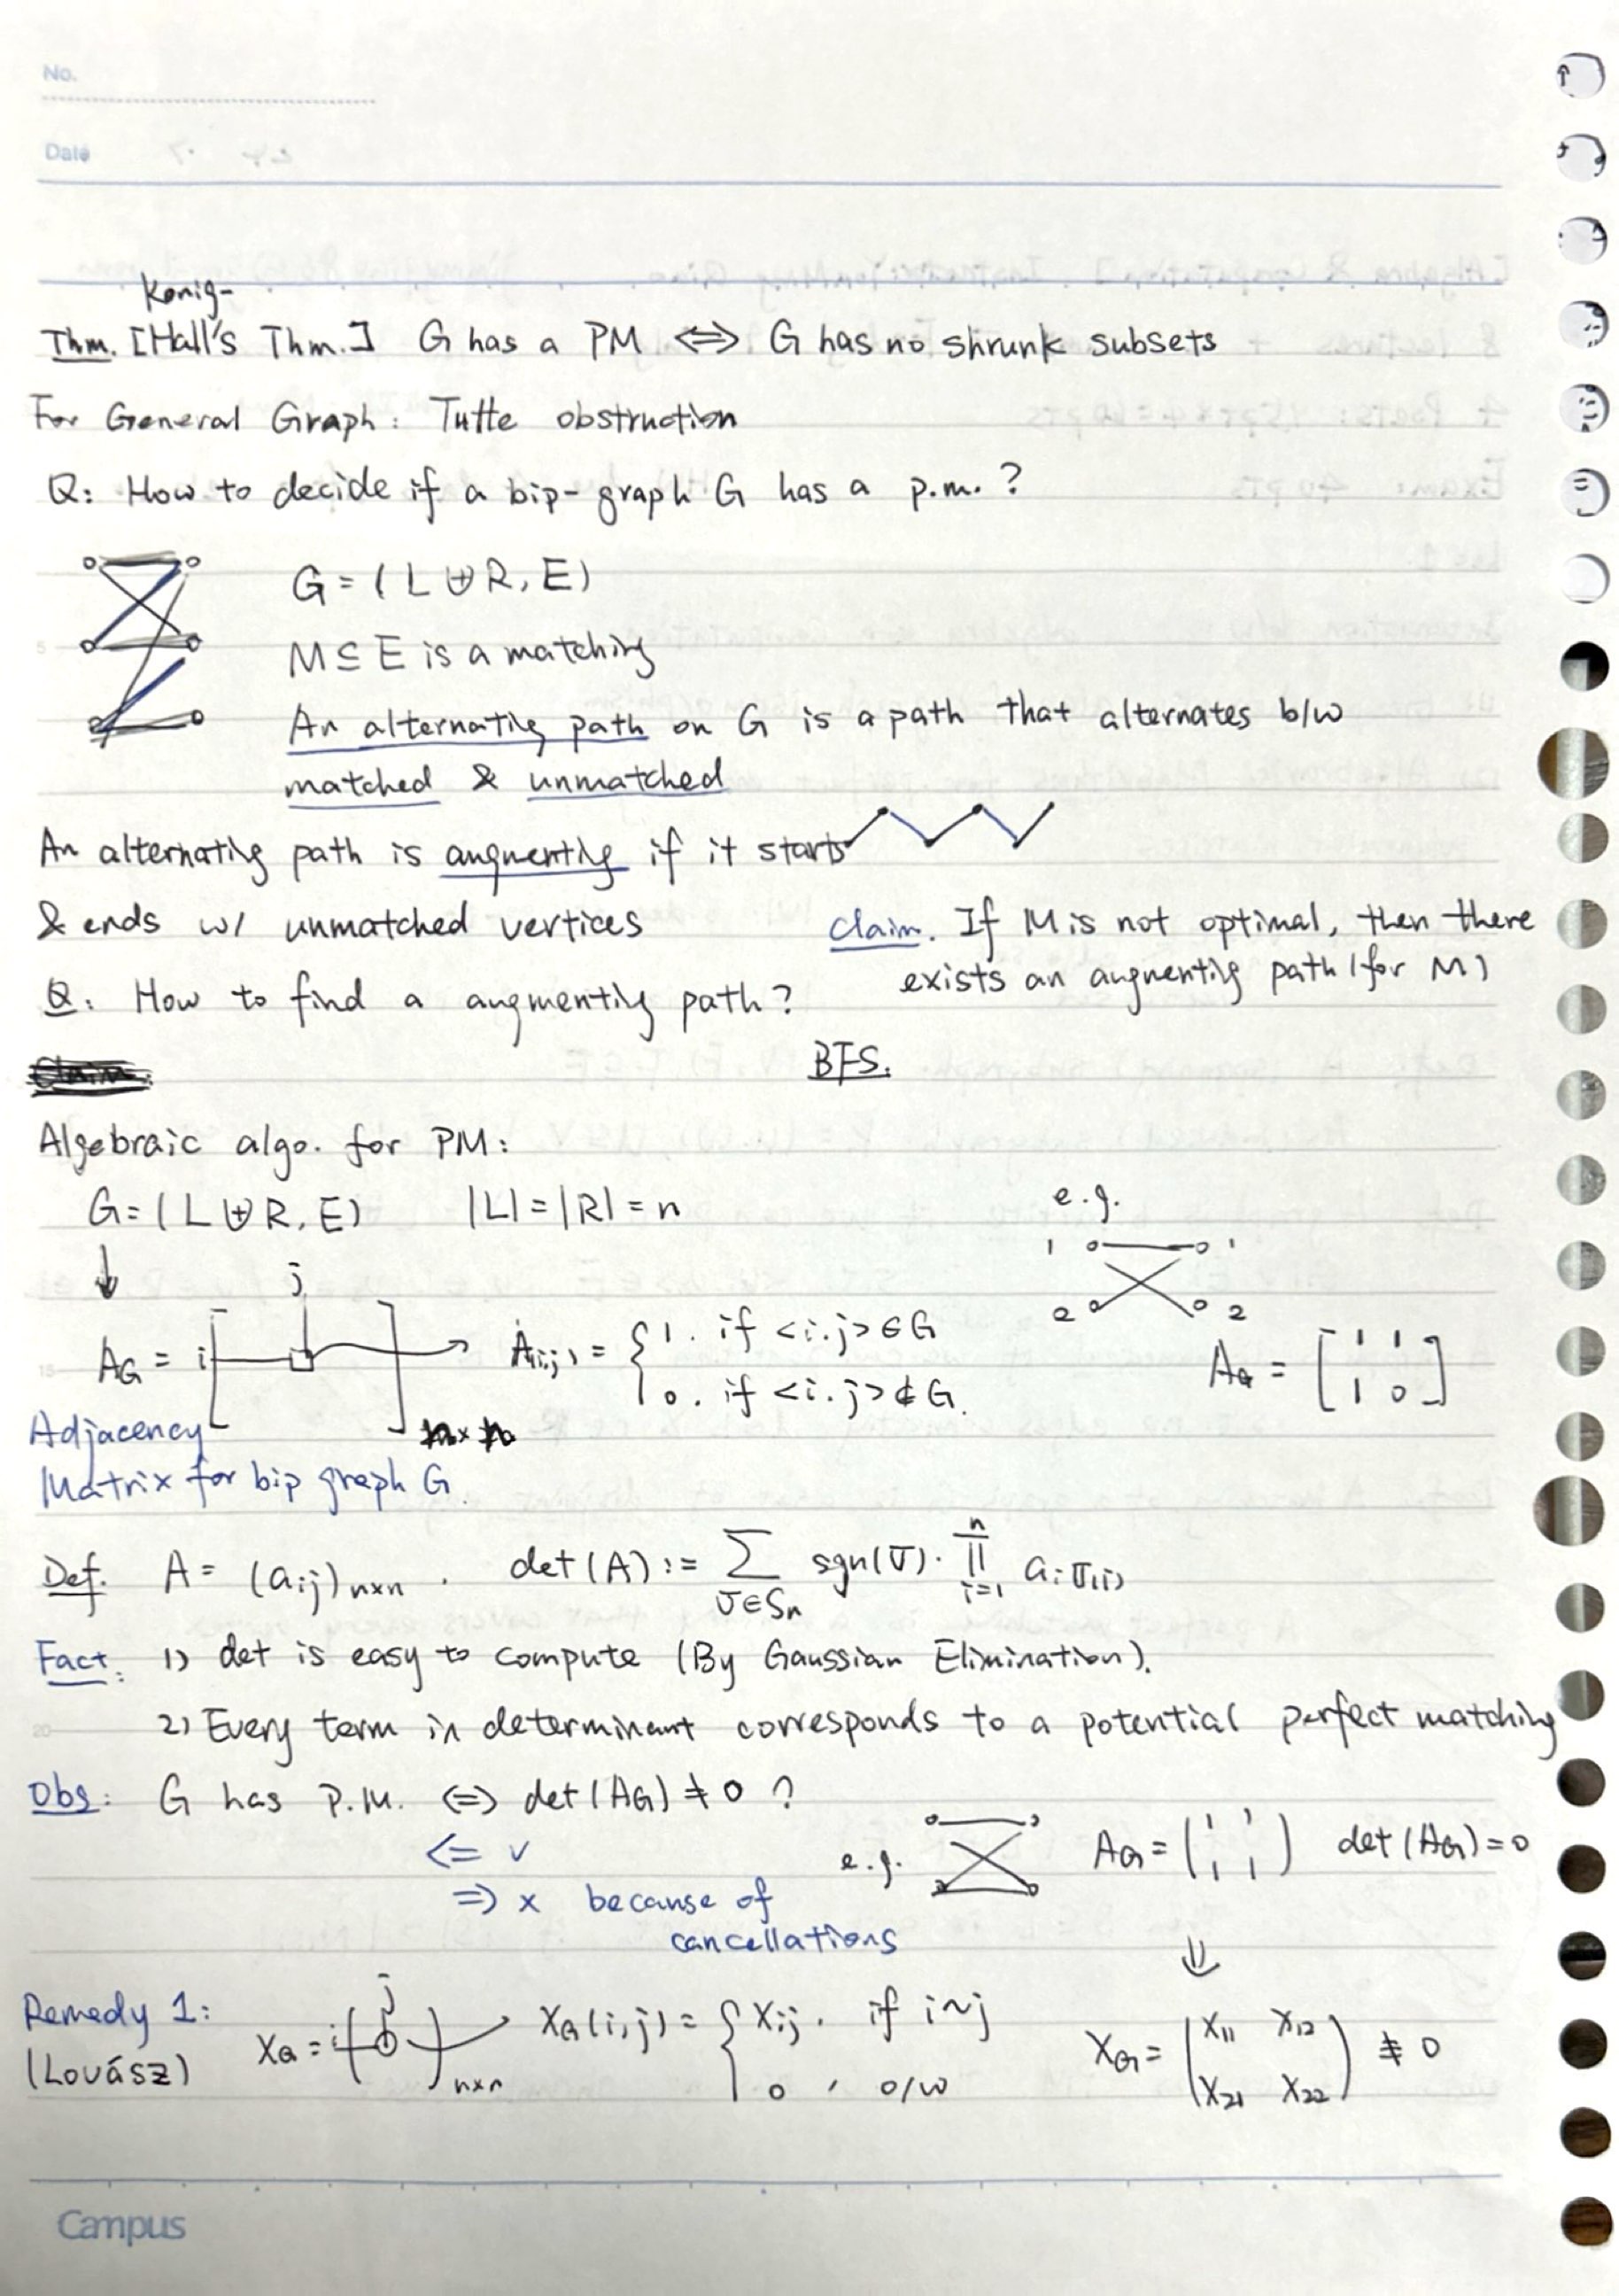 No.
Date
Konig-
Thm. [Hall's Thm.] G has a PM ⟺ G has no shrunk subsets
For General Graph: Tutte obstruction
Q: How to decide if a bip-graph G has a p.m.?
G = (L ⊎ R, E)
M ⊆ E is a matching
An alternating path on G is a path that alternates b/w
matched & unmatched
An alternating path is augmenting if it starts
& ends w/ unmatched vertices
Claim. If M is not optimal, then there
exists an augmenting path (for M)
Q: How to find a augmenting path?
BFS.
Algebraic algo. for PM:
G = (L ⊎ R, E) |L| = |R| = n
e.g.
1 1
2 2
j
A_G = i [ ] n×n → A(i,j) = { 1. if <i.j> ∈ G
0. if <i.j> ∉ G.
A_G = [ 1 1
1 0 ]
Adjacency
Matrix for bip graph G.
Def. A = (a_ij)_{n×n}. det(A) := ∑_{σ∈S_n} sgn(σ)· ∏_{i=1}^{n} a_{iσ(i)}
Fact: 1) det is easy to compute (By Gaussian Elimination).
2) Every term in determinant corresponds to a potential perfect matching
Obs: G has P.M. ⟺ det(A_G) ≠ 0 ?
<= ✓
=> x because of
cancellations
e.g. A_G = ( 1 1
1 1 ) det(A_G) = 0
⇓
Remedy 1:
(Lovász)
j
X_G = i ( )_{n×n} → X_G(i,j) = { x_ij. if i~j
0, o/w
X_G = ( x_11 x_12
x_21 x_22 ) ≢ 0
5
15
20
Campus